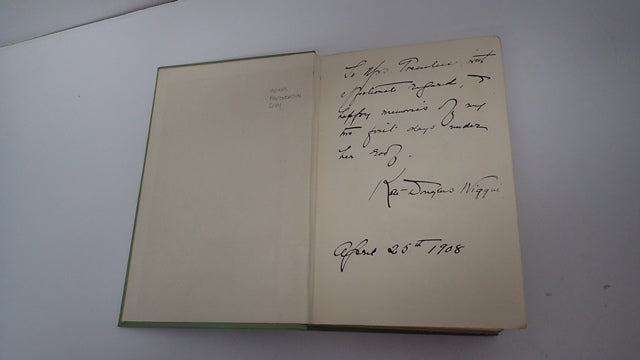 To Mrs. Tremlee, with
affectionate regards, &
happy memories of my
two first days under
her roof.
Kate Douglas Wiggin
April 25th 1908